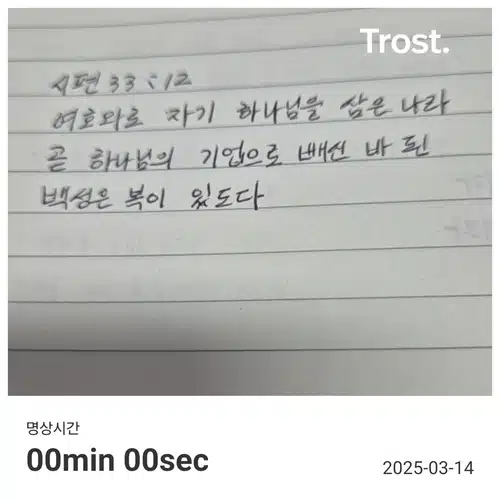 Trost.
시편 33:12
여호와로 자기 하나님을 삼은 나라
곧 하나님의 기업으로 빼신 바 된
백성은 복이 있도다
명상시간
00min 00sec
2025-03-14